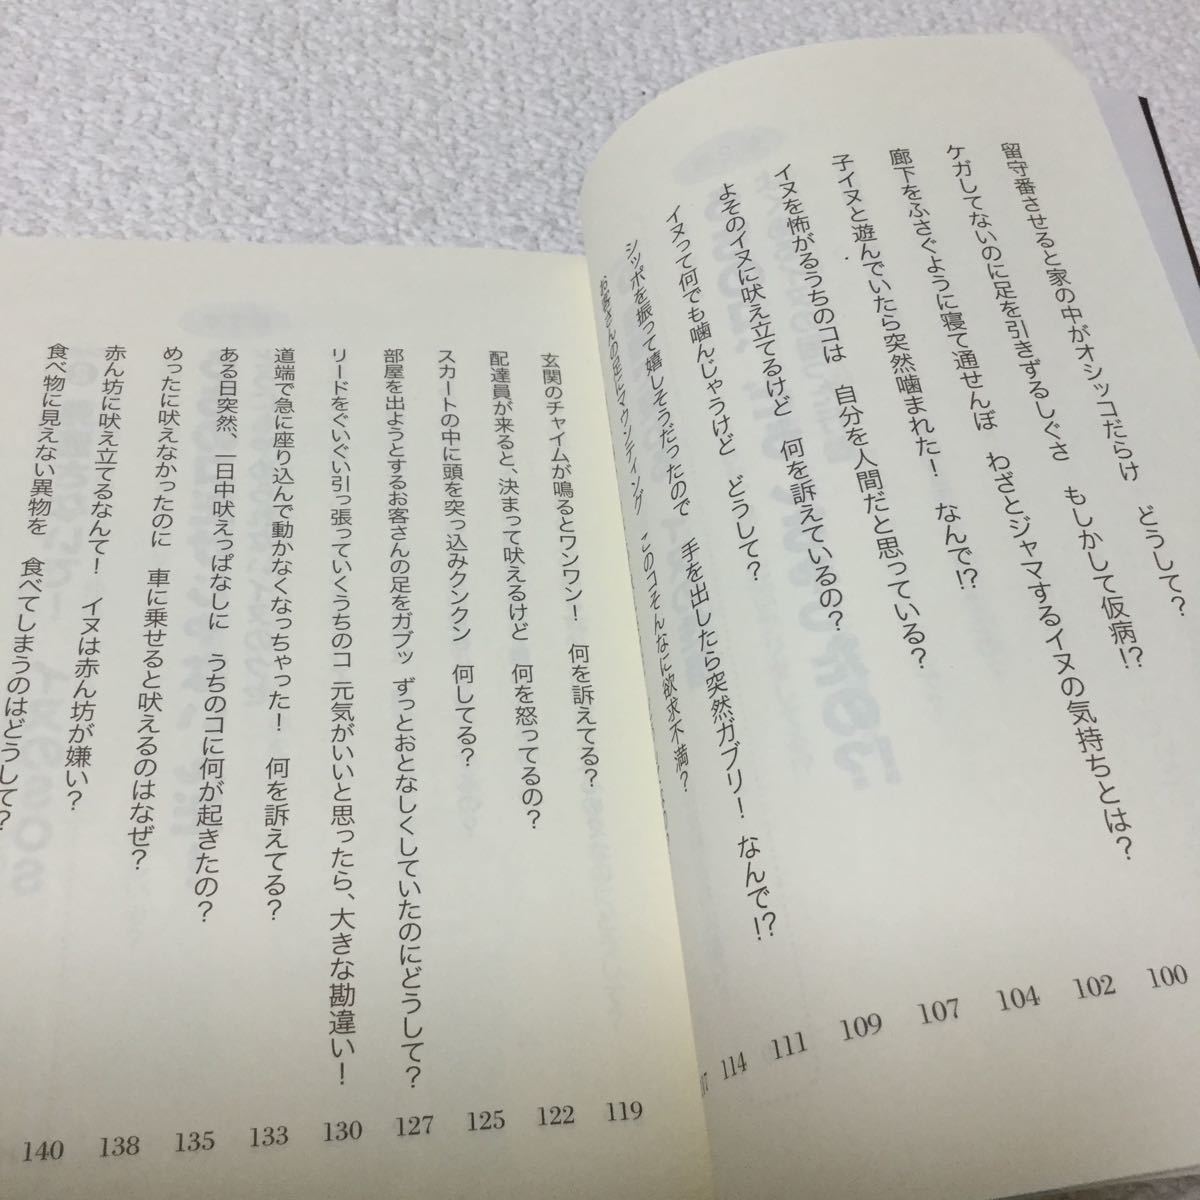 留守番させると家の中がオシッコだらけ　どうして? 100
ケガしてないのに足を引きずるしぐさ　もしかして仮病!? 102
廊下をふさぐように寝て通せんぼ　わざとジャマするイヌの気持ちとは? 104
子イヌと遊んでいたら突然噛まれた!　なんで!? 107
イヌを怖がるうちのコは　自分を人間だと思っている? 109
よそのイヌに吠え立てるけど　何を訴えているの? 111
イヌって何でも噛んじゃうけど　どうして? 114
シッポを振って嬉しそうだったので　手を出したら突然ガブリ!　なんで!? 117
お客さんの足にマウンティング　このコそんなに欲求不満?
玄関のチャイムが鳴るとワンワン!　何を訴えてる? 119
配達員が来ると、決まって吠えるけど　何を怒ってるの? 122
スカートの中に頭を突っ込みクンクン　何してる? 125
部屋を出ようとするお客さんの足をガブッ　ずっとおとなしくしていたのにどうして? 127
リードをぐいぐい引っ張っていくうちのコ　元気がいいと思ったら、大きな勘違い! 130
道端で急に座り込んで動かなくなっちゃった!　何を訴えてる? 133
ある日突然、一日中吠えっぱなしに　うちのコに何が起きたの? 135
めったに吠えなかったのに　車に乗せると吠えるのはなぜ? 138
赤ん坊に吠え立てるなんて!　イヌは赤ん坊が嫌い? 140
食べ物に見えない異物を　食べてしまうのはどうして?